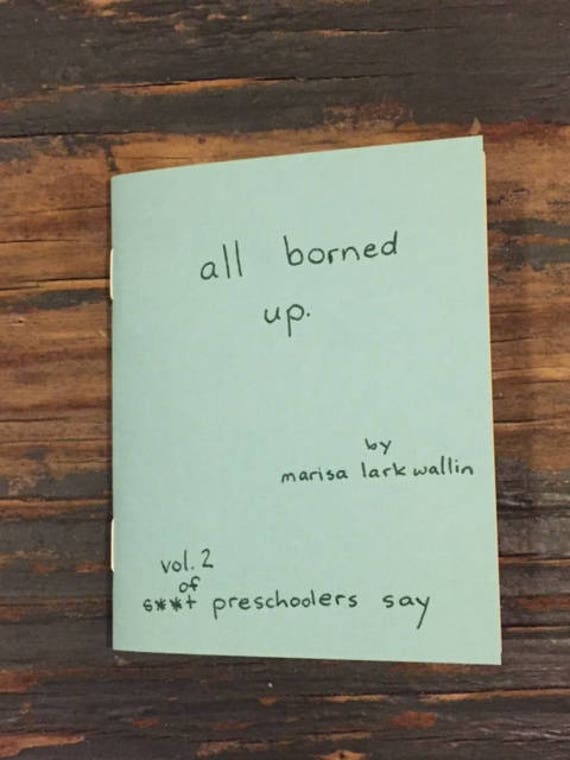 all borned
up.
by
marisa lark wallin
vol. 2
of
s**t preschoolers say